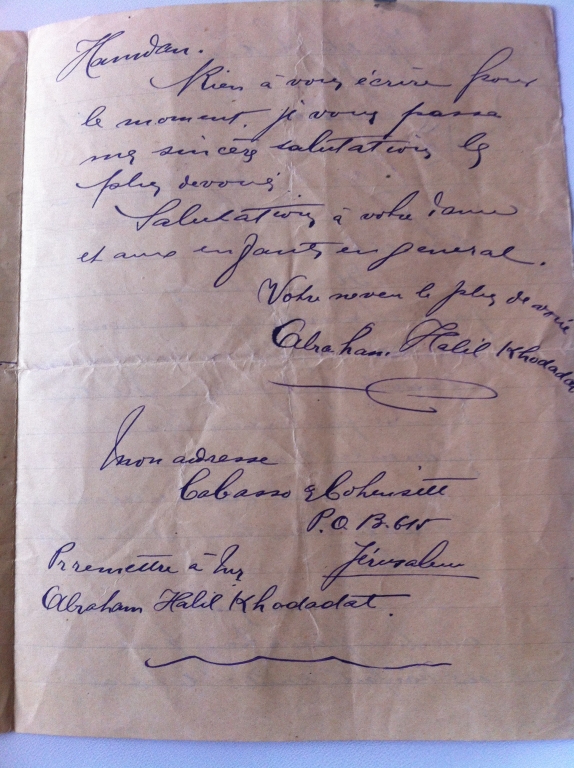 Hamdan.
Rien à vous écrire pour
le moment. je vous passe
mes sincère salutations les
plus devoués
Salutations à votre dame
et aux enfants en general.
Votre neveu le plus devoué
Abraham Halil Khodadat
Mon adresse
Cabasso & Cohensitt
P.O.B. 615
Jérusalem
Pr remettre à Mr
Abraham Halil Khodadat.